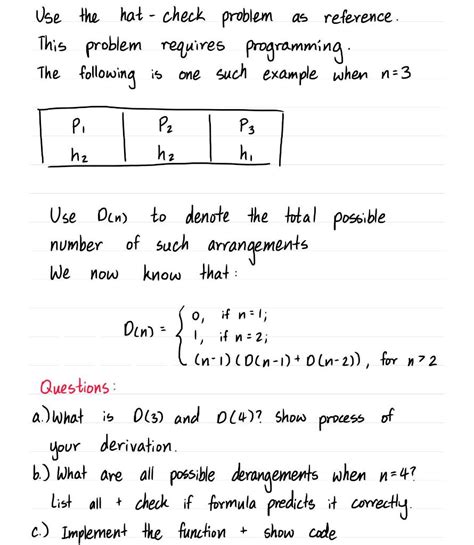 Use the hat-check problem as reference.
This problem requires programming.
The following is one such example when n=3
P₁ P₂ P₃
h₂ h₂ h₁
Use D(n) to denote the total possible
number of such arrangements
We now know that:
D(n) = { 0, if n=1;
1, if n=2;
(n-1)(D(n-1) + D(n-2)), for n>2
Questions:
a.) What is D(3) and D(4)? show process of
your derivation.
b.) What are all possible derangements when n=4?
List all + check if formula predicts it correctly.
c.) Implement the function + show code